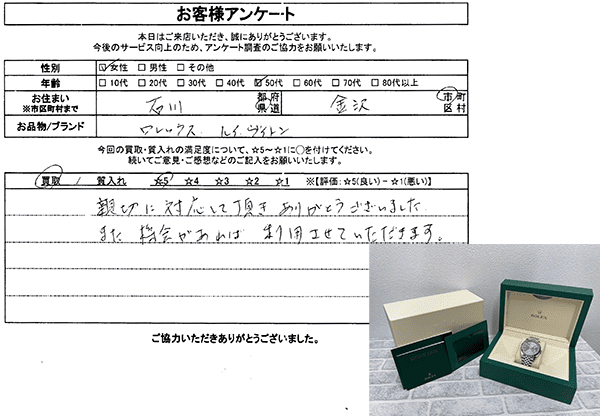 お客様アンケート
本日はご来店いただき、誠にありがとうございます。
今後のサービス向上のため、アンケート調査のご協力をお願いいたします。
性別 ☑女性 □男性 □その他
年齢 □10代 □20代 □30代 □40代 ☑50代 □60代 □70代 □80代以上
お住まい ※市区町村まで 石川 都府県道 金沢 市町区村
お品物/ブランド ロレックス. ルイ.ヴィトン
今回の買取・質入れの満足度について、☆5～☆1に○を付けてください。
続いてご意見・ご感想などのご記入をお願いいたします。
買取 / 質入れ ☆5 ☆4 ☆3 ☆2 ☆1 ※【評価：☆5(良い)－☆1(悪い)】
親切に対応して頂きありがとうございました
また機会があれば利用させていただきます。
ご協力いただきありがとうございました。
ROLEX